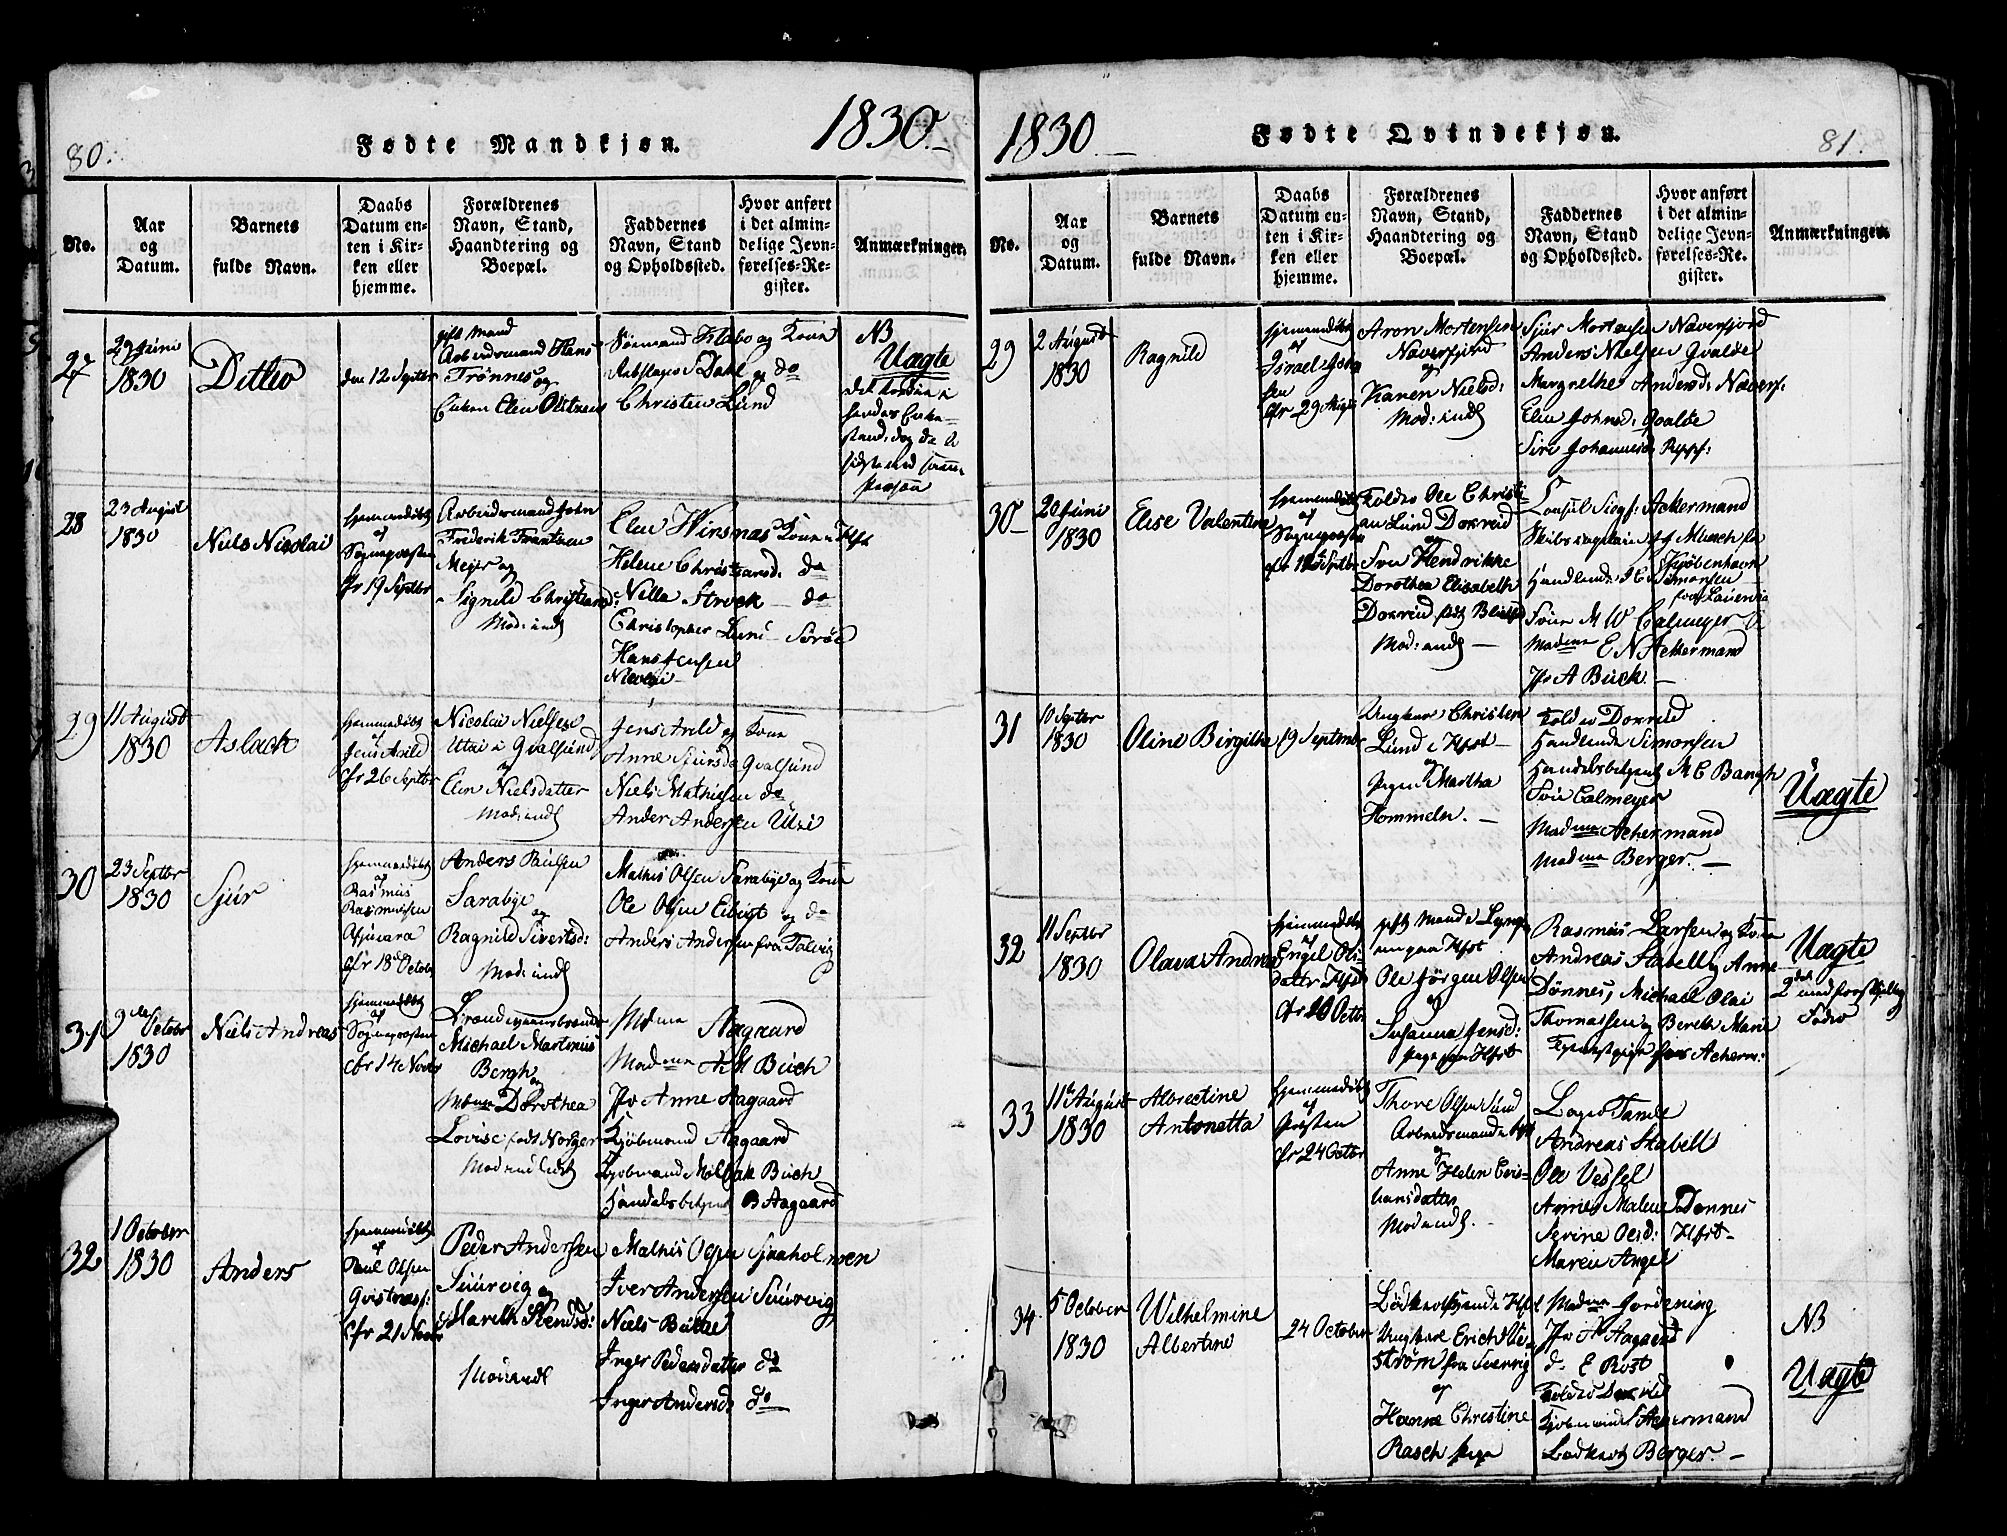 80.
Fødte Mandkjøn.
1830.
No.
Aar
og
Datum.
Barnets
fulde Navn.
Daabs
Datum en-
ten i Kir-
ken eller
hjemme.
Forældrenes
Navn, Stand,
Haandtering og
Boepæl.
Faddernes
Navn, Stand
og Opholdssted.
Hvor anført
i det almin-
delige Jevn-
førelses-Re-
gister.
Anmærkninger.
27
29 Juni
1830
Ditlev
den 12 Septbr
gift Mand
Arbeidsmand Hans
Trønnes og
Enken Elen
Søemand Klabo og Kone
Dahl og do
Christen Lund
NB
Uægte
28
23 August
1830
Niels Nicolai
hjemmedøbt
af
Sognepræsten
cfr 19 Septbr
Arbeidsmand John
Frederik Frantzen
Meyer og
Signild Christians d:
Mod: inds
Elen Winsnæs Kone i Hfst
Helene Christiansd: do
Nella Strock - do
Christopher Lund - Sørøe
Hans Jensen
Nicolai
29
11 August
1830
Aslach
hjemmedøbt
af
Jens Arild
cfr 26 Septbr
Nicolai Nielsen
Utsi i Qvalsund
og
Elen Nielsdatter
Mod: inds
Jens Arild og Kone
Anne Siursd Qvalsund
Niels Mathisen do
Ander Andersen Utsi
30
23 Septbr
1830
Sjur
hjemmedøbt
af
Rasmus
Rasmussen
cfr 18 October
Anders Paulsen
Sarabye
og
Ragnild Sivertsd:
Mod: inds
Mathis Olsen Sarabye og Kone
Ole Olsen og do
Anders Andersen fra Talvig
31
9de October
1830
Niels Andreas
hjemmedøbt
af
Sognepræsten
cfr 14 Novbr
Michael Martinus
Bergh
og
Madme Dorothea
Lovise født Norger
Mod: inds
Madme Aagaard
Madame A M Buch
Jfr Anne Aagaard
Kjøbmand Aagaard
Kjøbmand Buch
Handelsbetjent B Aagaard
32
1 October
1830
Anders
hjemmedøbt
af
Paul Olsen
cfr 21 Novbr
Peder Andersen
Suurvig og
Marith
Mod: inds
Mathis Olsen Sjaaholmen
Iver Andersen Suurvig
Niels
Inger Pedersdatter do
Inger Andersd: do
1830
Fødte Qvindekjøn.
81.
No.
Aar
og
Datum.
Barnets
fulde Navn.
Daabs
Datum en-
ten i Kir-
ken eller
hjemme.
Forældrenes
Navn, Stand,
Haandtering og
Boepæl.
Faddernes
Navn, Stand
og Opholdssted.
Hvor anført
i det almin-
delige Jevn-
førelses-Re-
gister.
Anmærkninger.
29
2 August
1830
Ragnild
hjemmedøbt
af
Israel
cfr 29 August
Aron Mortensen
Naverfjord
og
Karen Nielsd:
Mod: inds
Sjur Mortensen Naverfjord
Anders Nielsen Qvalde
Margrethe Andersd: Naverf.
Elen Johnsd: Qvalde
Siri Johannesd: Repp:
30
20 Juni
1830
Elise Valentine
hjemmedøbt
af
Sognepræsten
cfr 12 Septbr
Tolder Ole Christi-
an Lund Dorreid
og
Frue Hendrikke
Dorothea Elisabeth
Dorreid født
Mod: inds
Consul Siegf: Ackermand
Skibscaptain Munch fra
Kjøbenhavn
Handlende Simonsen
fra Laurvig
Frue M W Calmeyer
Madame E N Ackermand
Jfr A Buck
31
10 Septbr
1830
Oline Birgithe
19 Septmbr
Ungkarl Christen
Lund i Hfst
og
Pigen Martha
Hommeln.
Tolder Dorreid
Handlende Simonsen
Handelsbetjent M C Bangh
Frue Calmeyer
Madme Ackermand
Madme Berger.
Uægte
32
11 Septbr
1830
Olava Andrea
hjemmedøbt
af
Engel Ols-
datter Hfst
cfr 20 Octbr
gift Mand i Lyngen
Ole Jørgen Olsen
og
Susanna Jensd:
Pige paa Hfst
Rasmus Larsen og Kone
Andreas Stabell, Anne
Dønnes, Michael Olai
Thomassen og Berith Marie
Tjenestepige hos Ackerm:
Uægte
33
11te August
1830
Albrectine
Antonetta
hjemmedøbt
af
Præsten
cfr 24 Octbr
Thore Olsen Sund
Arbeidsmand i Hfst
og
Anne Helen Chris-
tiansdatter
Mod: inds.
Andreas Stabell
Ole Vessel
Agnes Malene Dønnes
Serine Olsd: Hfst
Maren Angel
34
5 October
1830
Wilhelmine
Albertine
24 October
Ungkarl Erich We-
strøm fra Sverrig
og
Hanne Christine
Rasch Pige
Madme Jordening
Jfr A Aagaard
do E Rust
Tolder Dorreid
Kjøbmand Ackermand
Berger.
NB
Uægte